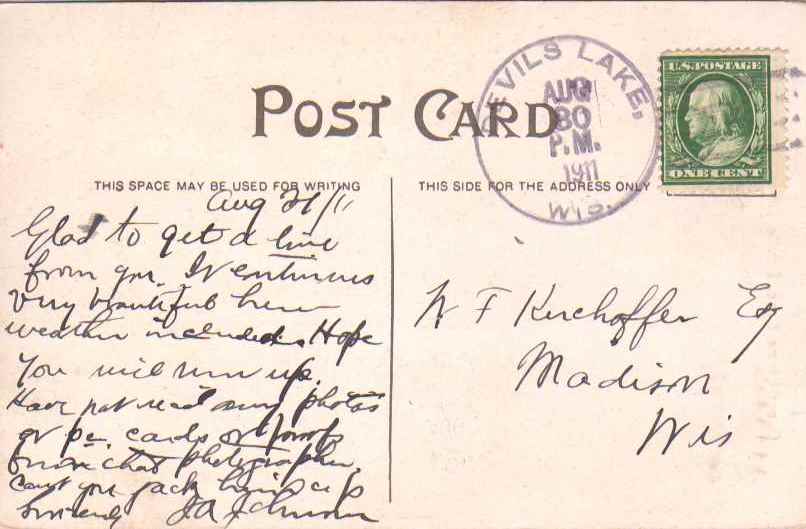 POST CARD
DEVILS LAKE,
AUG
30
P.M.
1911
WIS.
U.S. POSTAGE
ONE CENT
THIS SPACE MAY BE USED FOR WRITING
Aug /11
Glad to get a line
from you. It continues
very beautiful here
weather included. Hope
you will run up.
Have not rec'd any photos
or pc. cards or proofs
from that photographer.
Can't you jack him up
Sincerely
THIS SIDE FOR THE ADDRESS ONLY
F Kerchoffer Esq
Madison
Wis